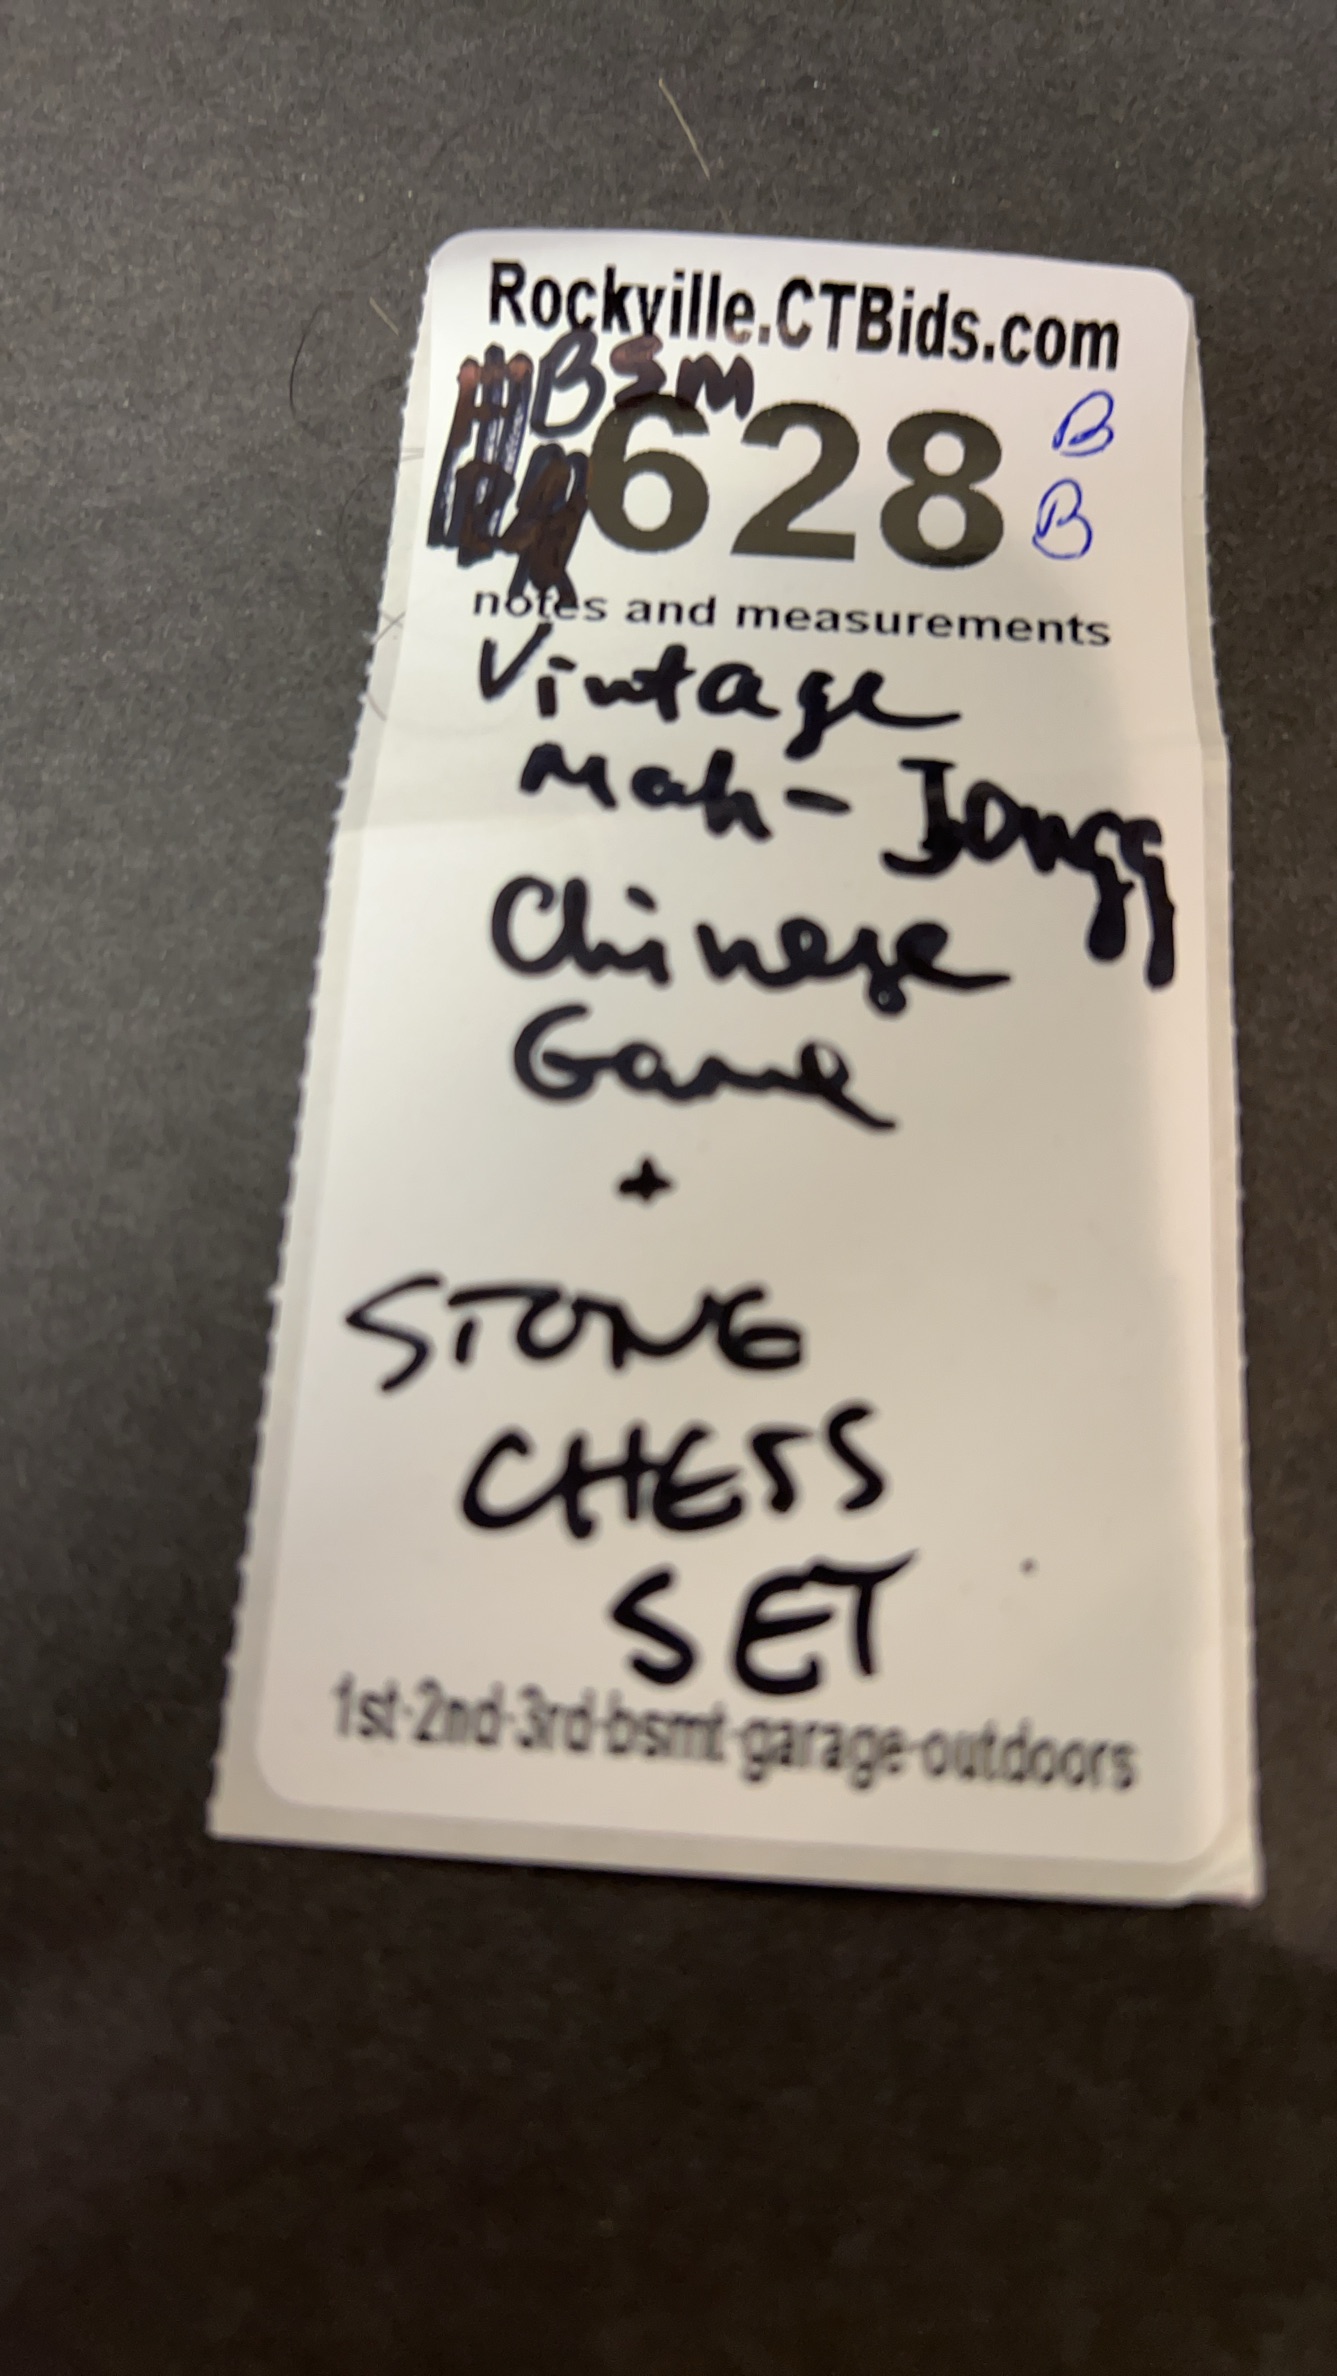 Rockville.CTBids.com
BSM
628
B
B
notes and measurements
Vintage
Mah-Jongg
Chinese
Game
+
STONE
CHESS
SET
1st-2nd-3rd-bsmt-garage-outdoors